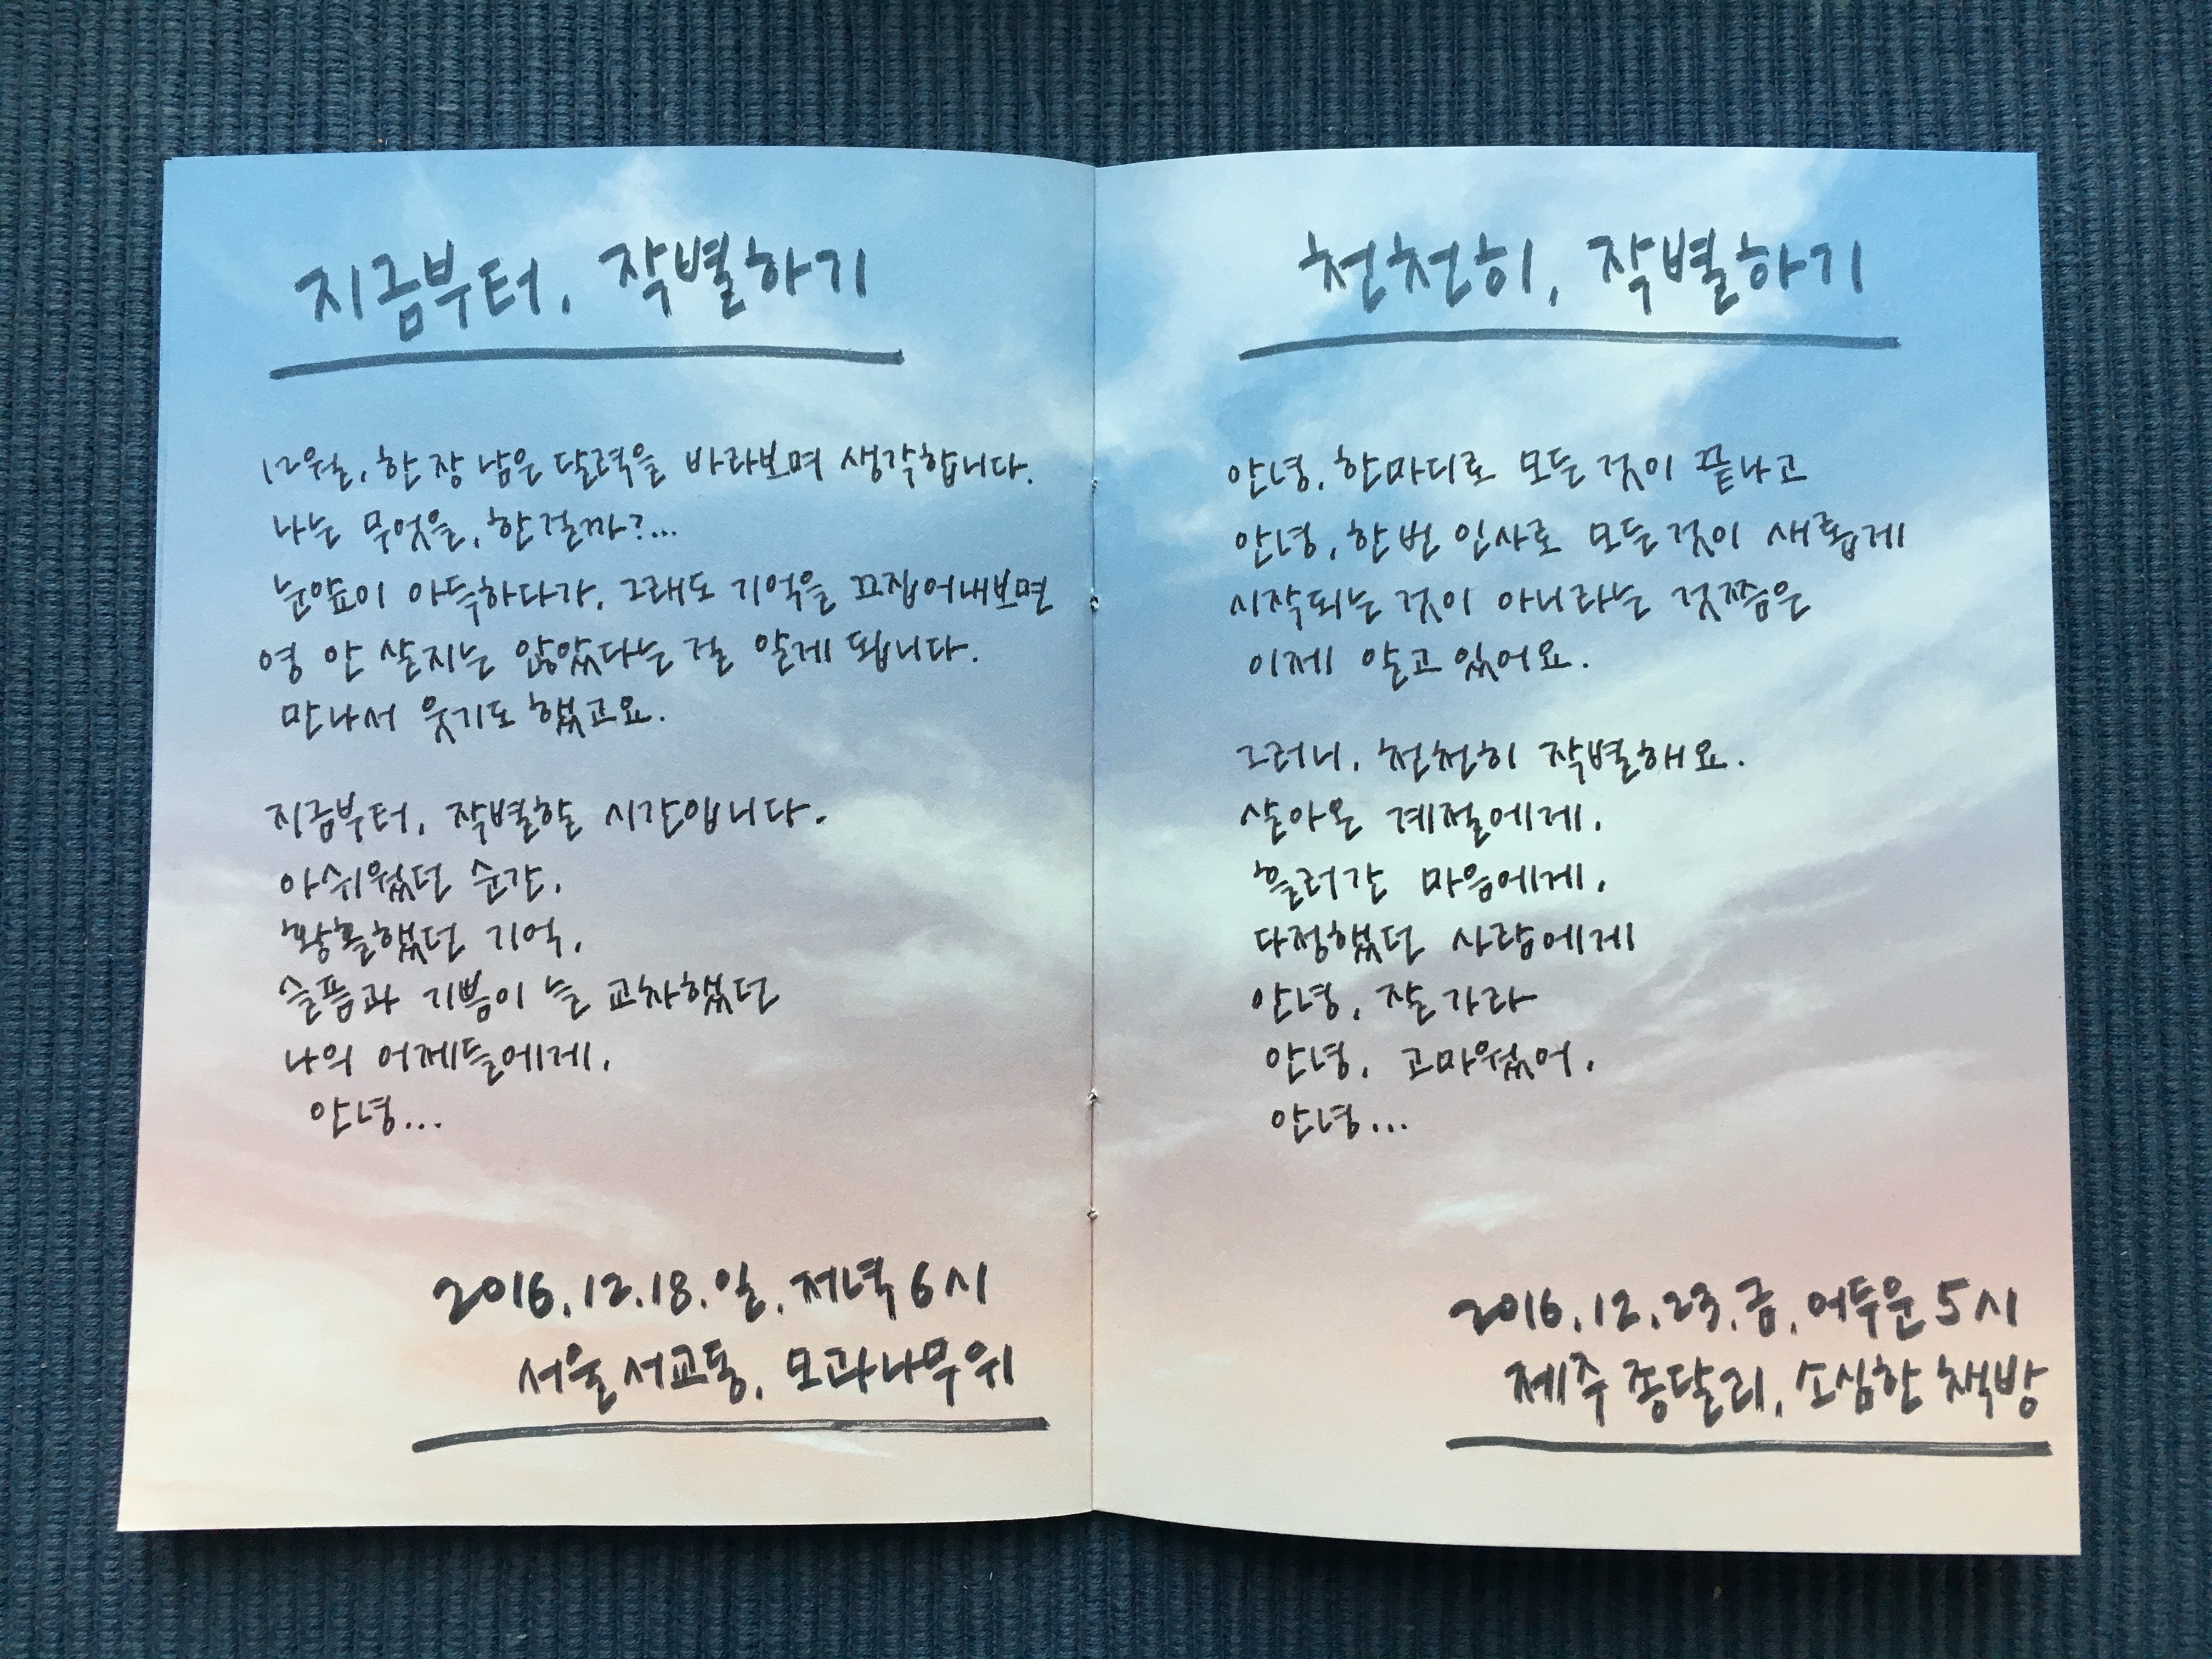 지금부터, 작별하기
12월, 한 장 남은 달력을 바라보며 생각합니다.
나는 무엇을, 한걸까?...
눈앞이 아득하다가, 그래도 기억을 끄집어내보면
영 안 살지는 않았다는 걸 알게 됩니다.
만나서 웃기도 했고요.
지금부터, 작별할 시간입니다.
아쉬웠던 순간,
황홀했던 기억,
슬픔과 기쁨이 늘 교차했던
나의 어제들에게,
안녕...
2016.12.18.일.저녁 6시
서울 서교동, 모과나무위
천천히, 작별하기
안녕, 한마디로 모든 것이 끝나고
안녕, 한번 인사로 모든 것이 새롭게
시작되는 것이 아니라는 것쯤은
이제 알고 있어요.
그러니, 천천히 작별해요.
살아온 계절에게,
흘러간 마음에게,
다정했던 사람에게
안녕, 잘 가라
안녕, 고마웠어,
안녕...
2016.12.23.금.어두운 5시
제주 종달리, 소심한 책방